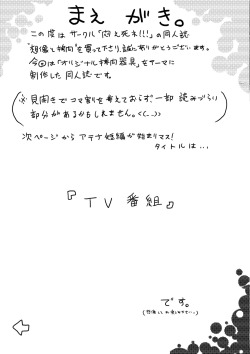 まえがき。
この度はサークル「向と死ネ!!!」の同人誌
"想像と拷問"を買って下さり、誠にありがとうございます。
今回は「オリジナル拷問器具」をテーマに
制作した同人誌です。
※見開きでコマ割りを考えておらず、一部 読みづらい
部分があるかもしれません。<(_ _)>
次ページからアテナ妊編が始まりマス!
タイトルは…
『TV番組』
です。